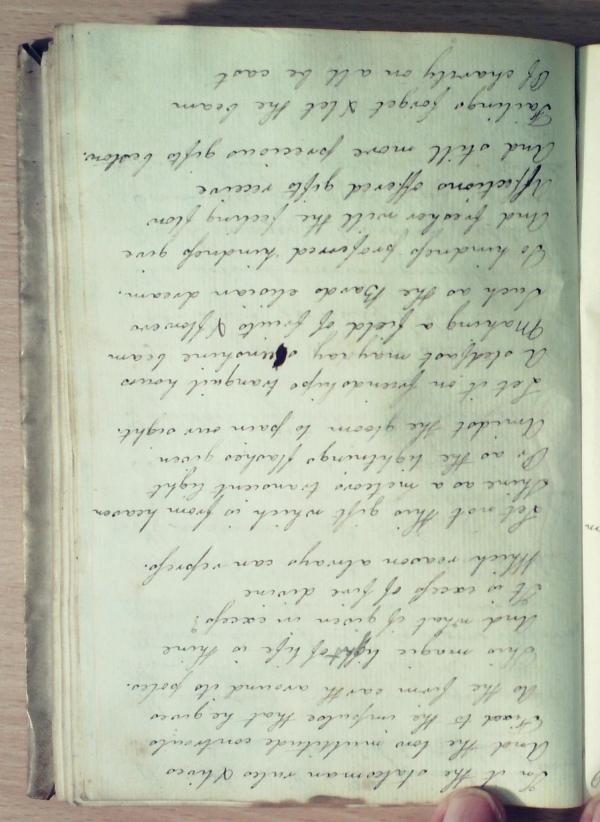 In it the statesman rules & lives
And the low multitude controuls
Fixed to the impulse that he gives
As the firm earth around its poles.
This magic light of life is thine
And what if given in excess?
It is excess of fire divine
Which reason always can repress.
Let not this gift which is from heaven
Shine as a meteors transcient light
Or as the lightnings flashes given
Amidst the gloom to pain our sight.
Let it on friendships tranquil hours
A stedfast may ray, sunshine beam
Making a field of fruits & flowers
Such as the Bards elisian dream.
To kindness proferred kindness give
And fresher will the feeling flow
Affections offered gifts receive
And still more precious gifts bestow.
Failings forget & let the beam
Of charity on all be cast